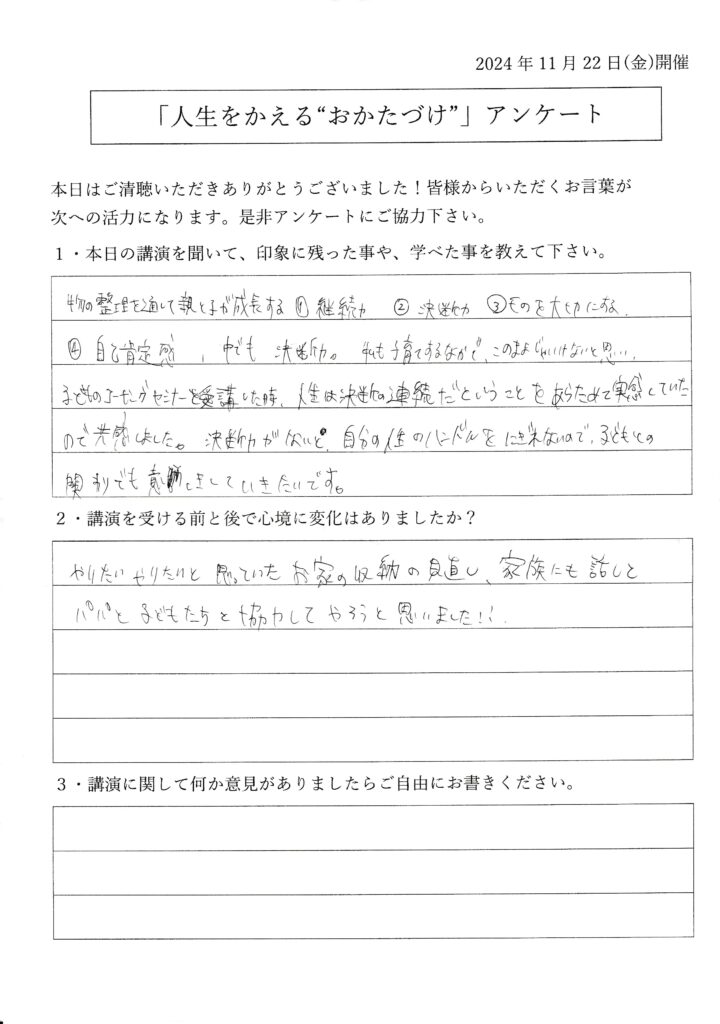 2024 年 11 月 22 日(金)開催
「人生をかえる“おかたづけ”」アンケート
本日はご清聴いただきありがとうございました！皆様からいただくお言葉が
次への活力になります。是非アンケートにご協力下さい。
１・本日の講演を聞いて、印象に残った事や、学べた事を教えて下さい。
物の整理を通して親と子が成長する ① 継続力 ② 決断力 ③ ものを大切にする
④ 自己肯定感 、中でも 決断力。 私も子育てするなかで、このままじゃいけないと思い、
子どものコーチングセミナーを受講した時、人生は決断の連続だということをあらためて実感していた
ので共感しました。 決断力がないと、自分の人生のハンドルをにぎれないので、子どもとの
関わりでも意識していきたいです。
２・講演を受ける前と後で心境に変化はありましたか？
やりたいやりたいと 思っていた お家の収納の見直し、家族にも話しと
パパと 子どもたちと協力して やろうと思いました!!
３・講演に関して何か意見がありましたらご自由にお書きください。